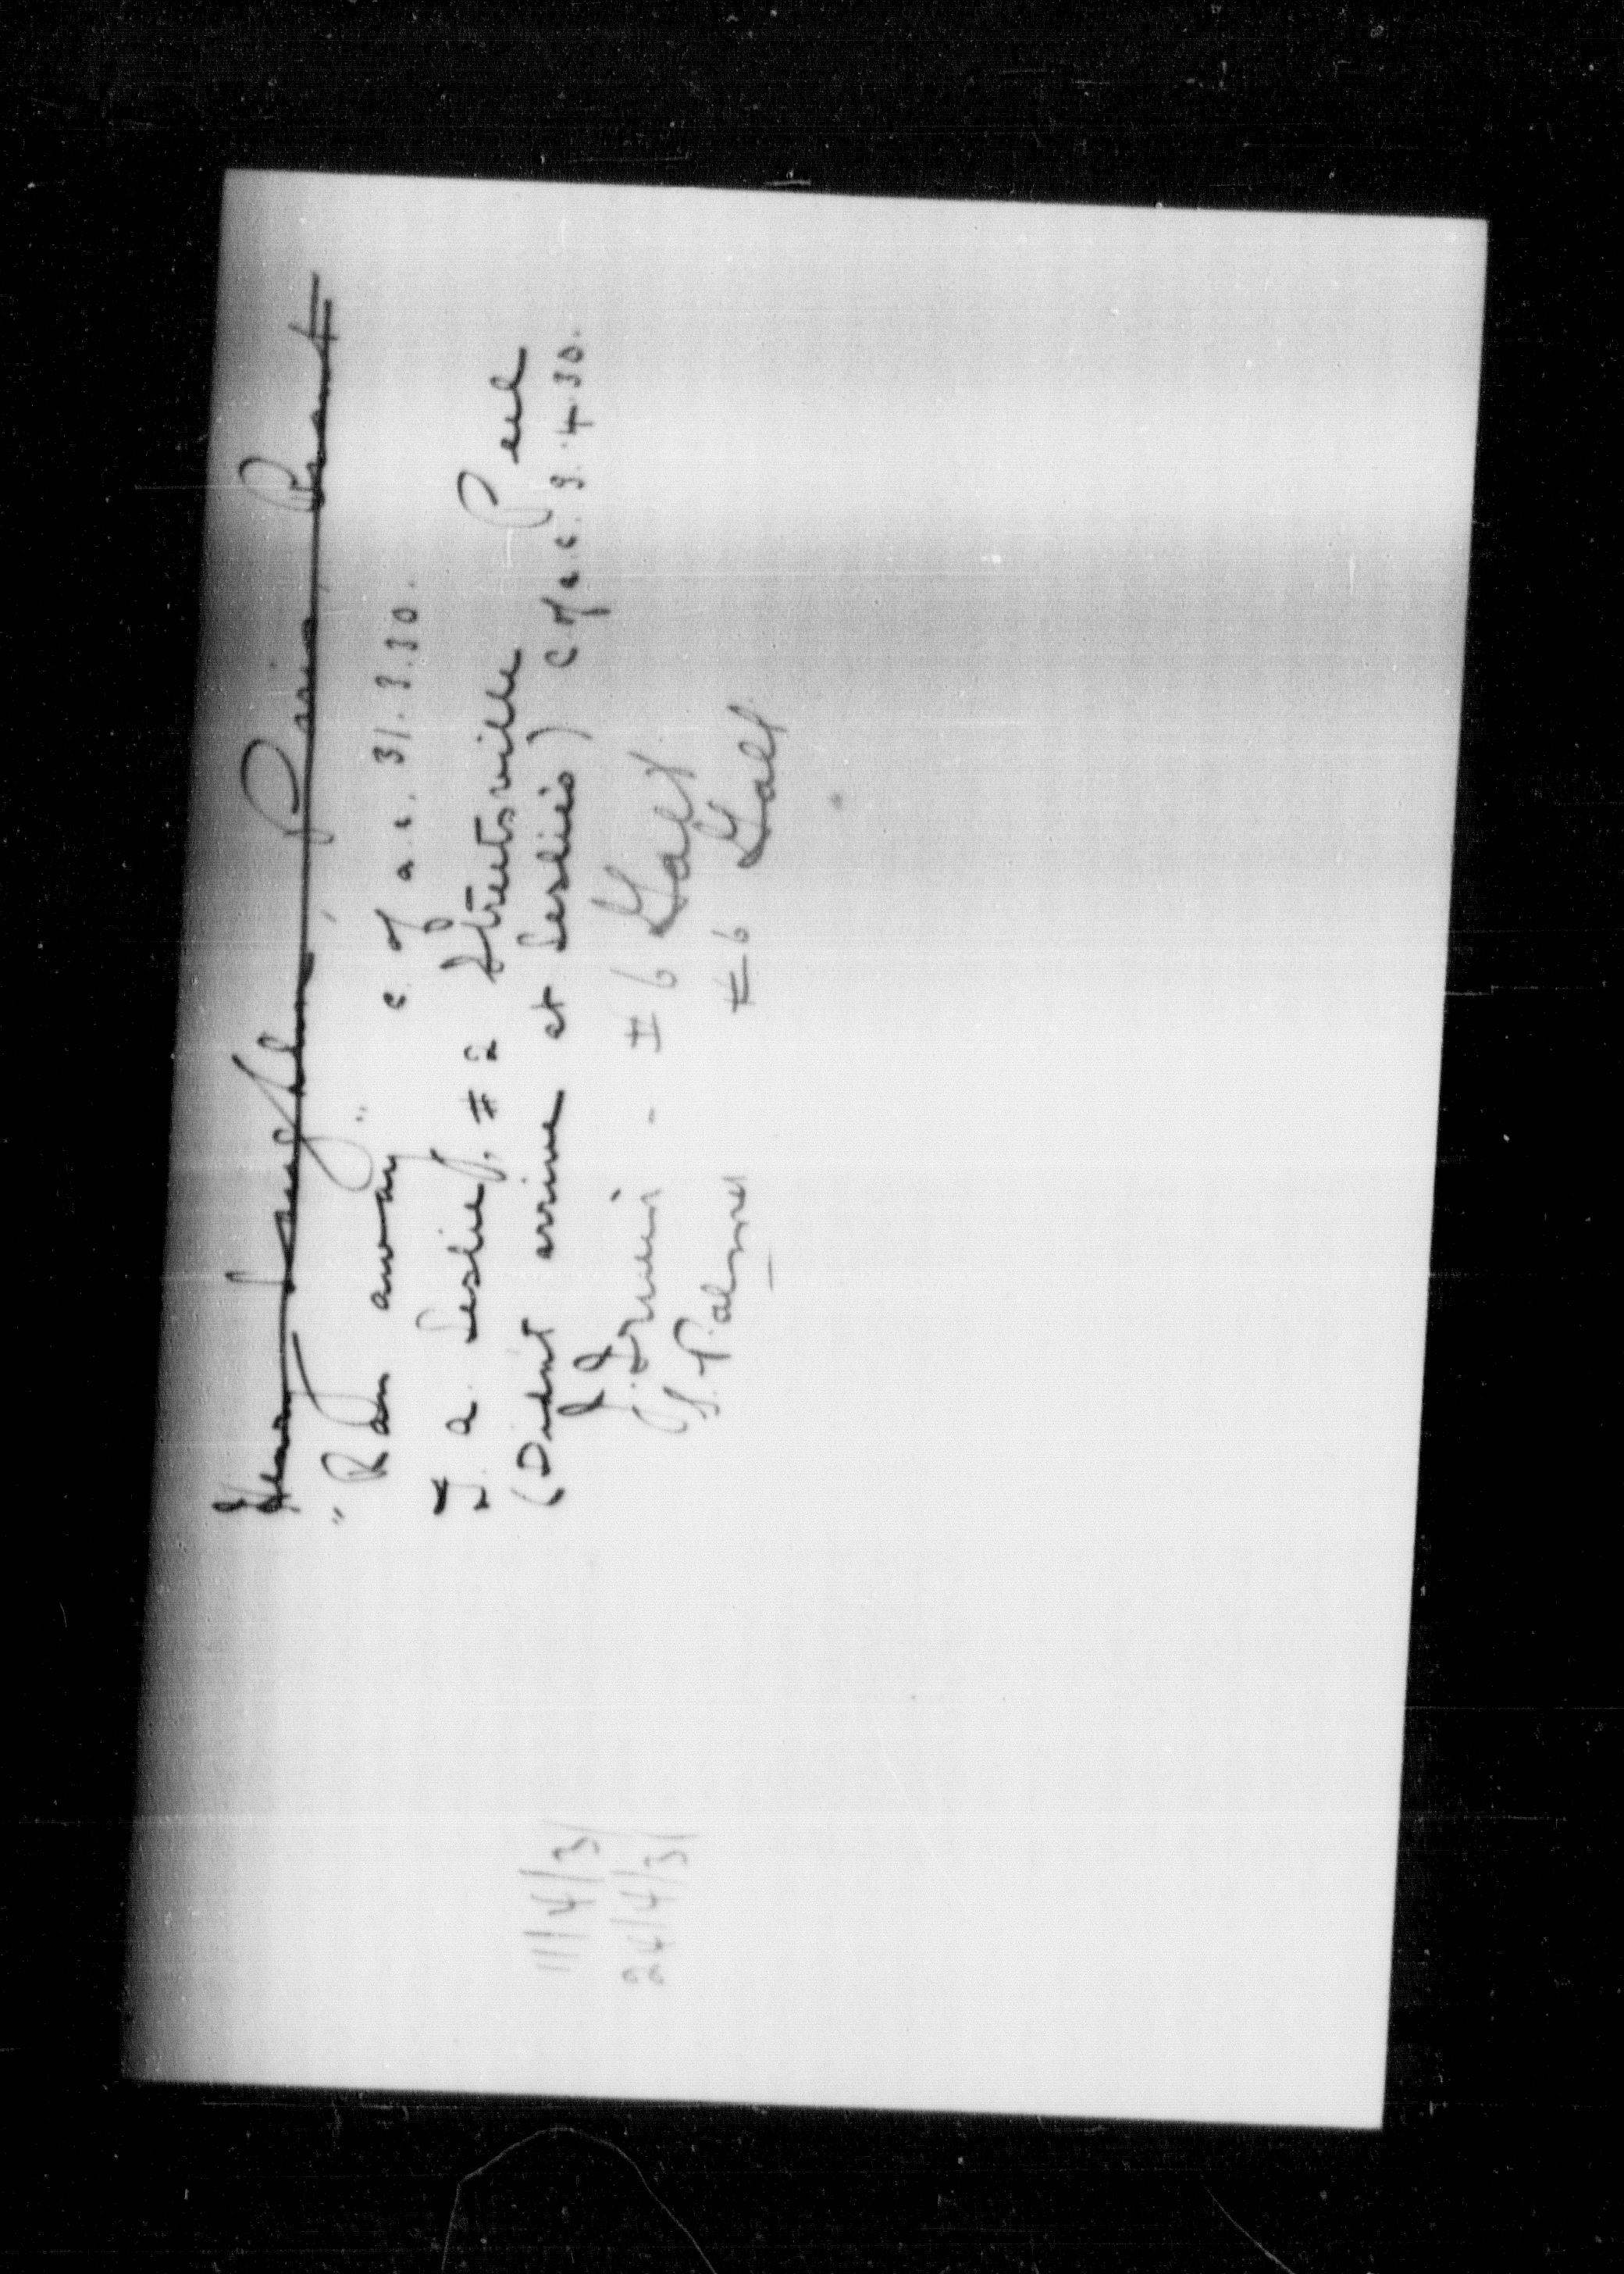 Henry Laughlin, Paris, Brant
"Ran away" c of a.c. 31.3.30.
J. A. Leslie, #2 Streetsville Peel
(Didnt arrive at Leslie's) C of a.c. 9.4.30.
11/4/31 J. Irwin - #6 Galt
24/4/31 S. Palmer #6 Galt